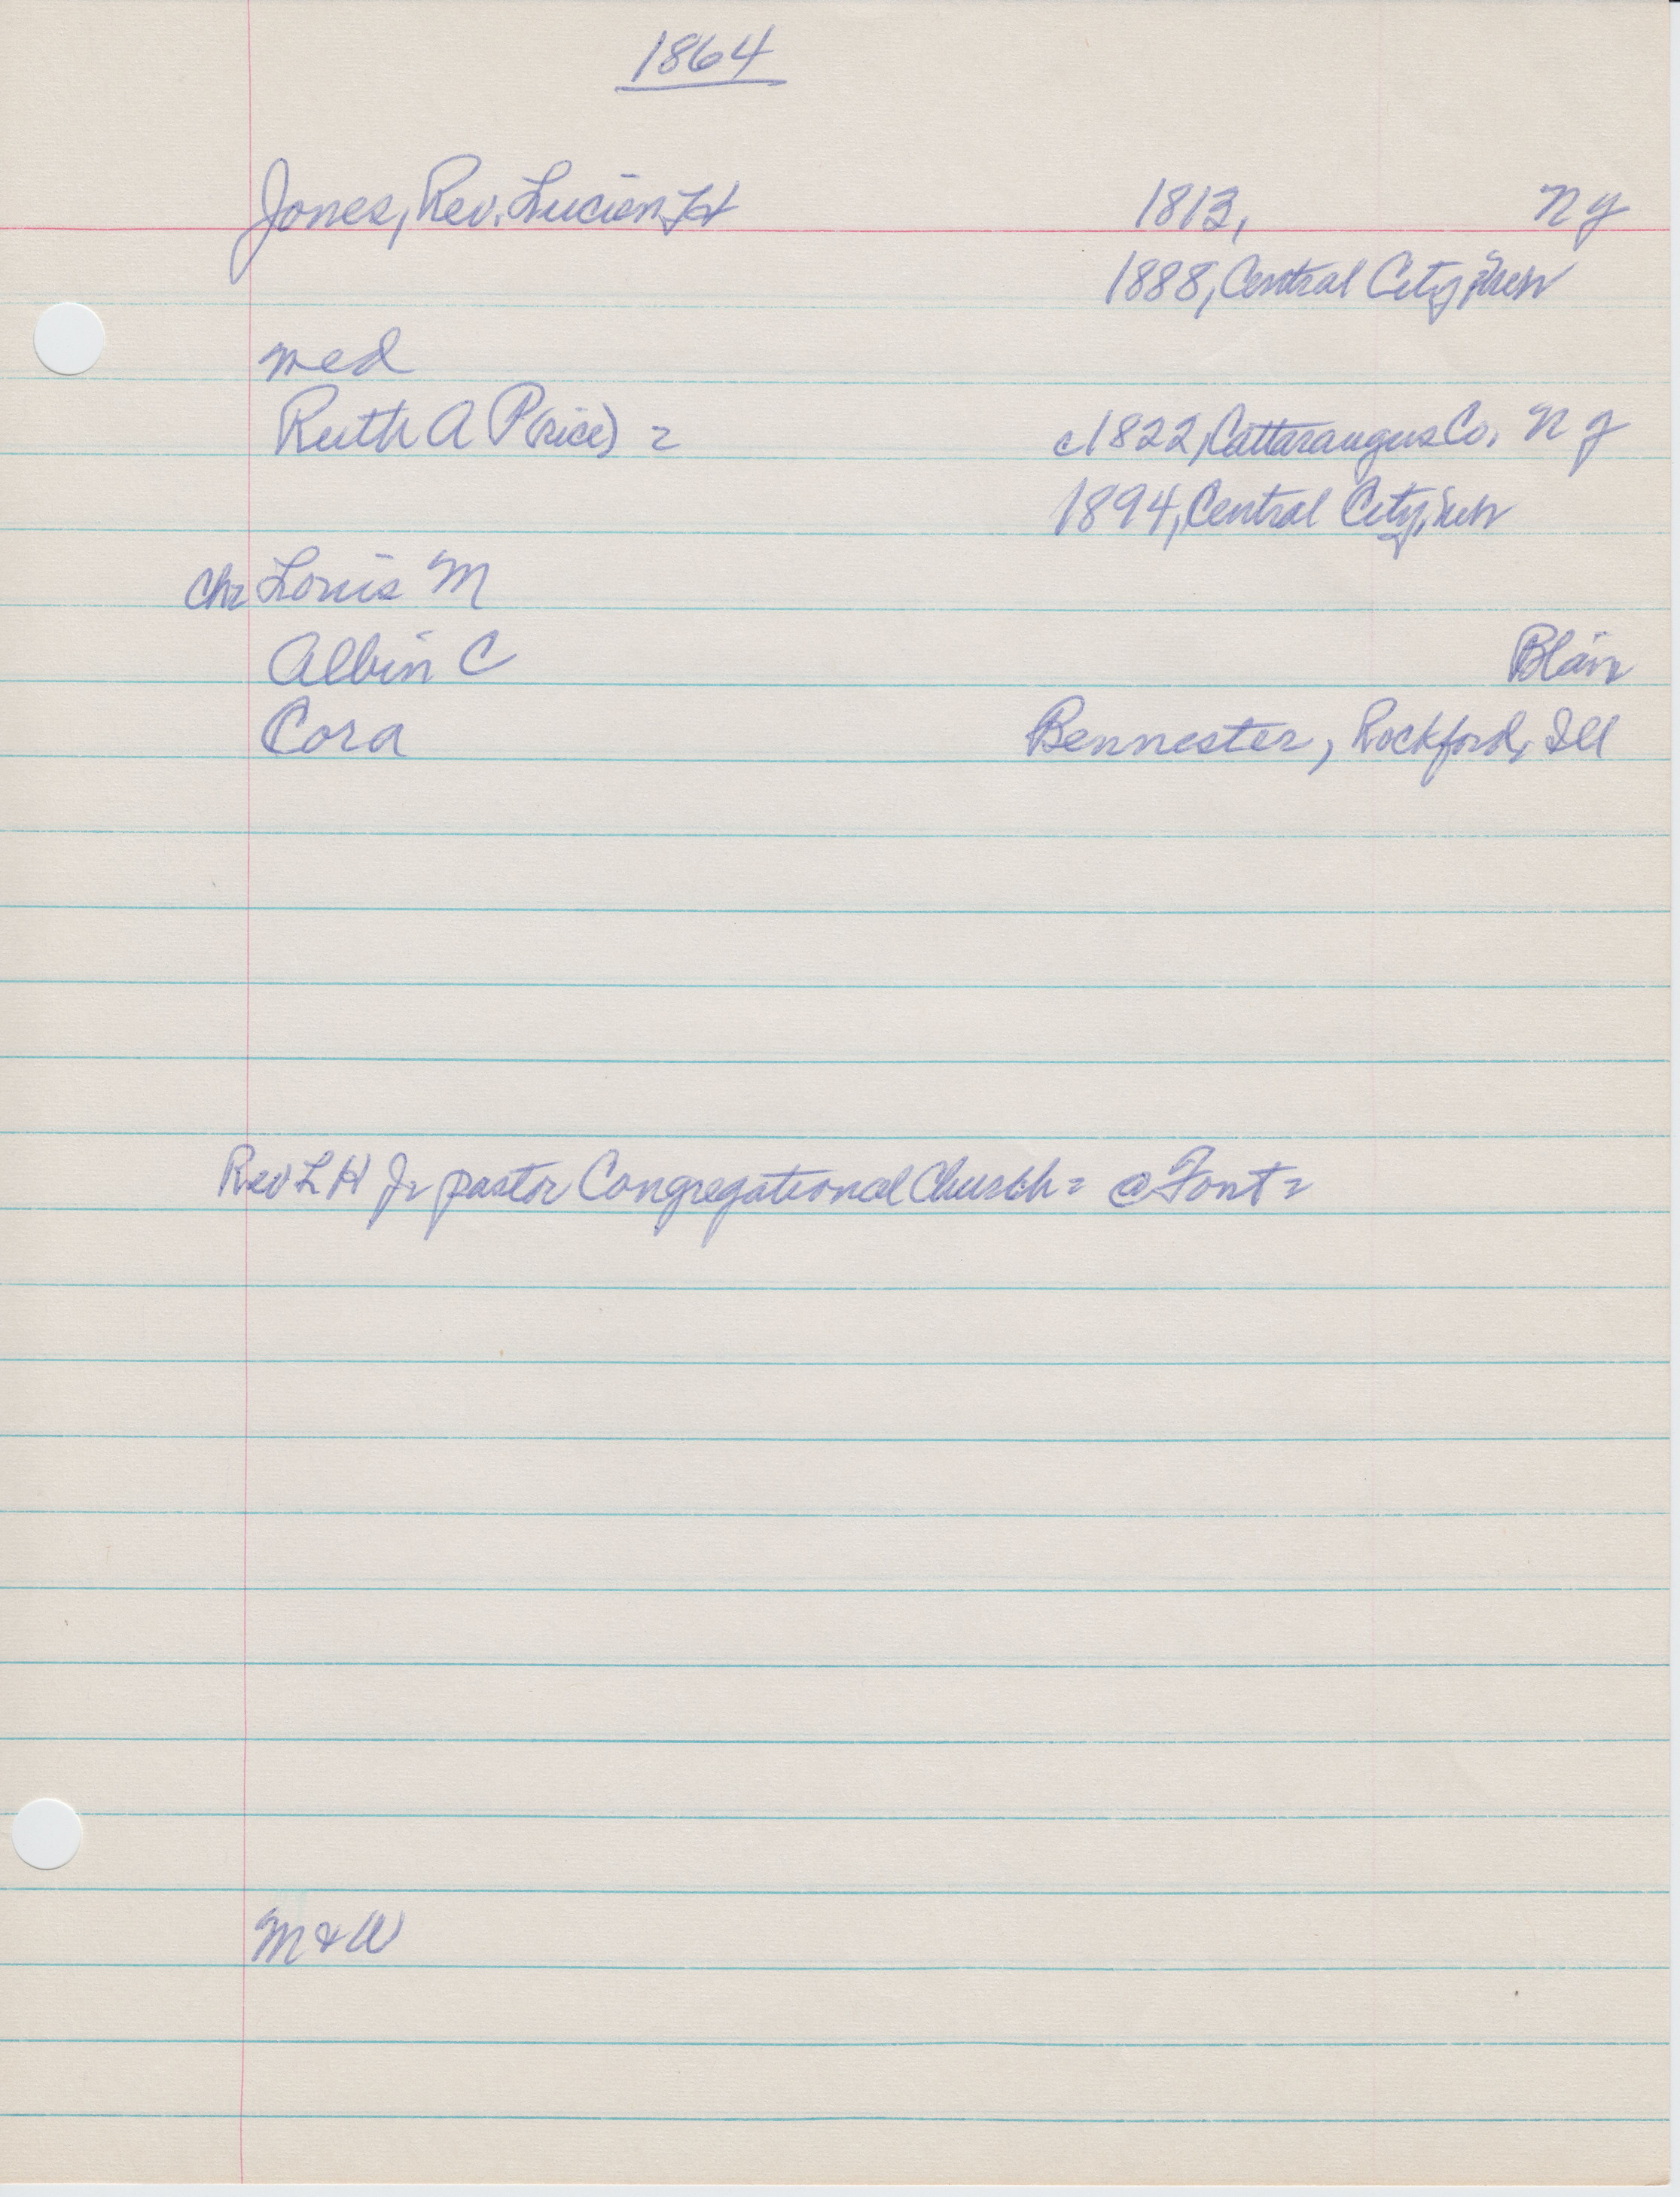 1864
Jones, Rev. Lucien H 1813, NY
1888, Central City, Neb
med
Ruth A P(rice) = c1822, Cattaraugus Co, NY
1894, Central City, Neb
Ch= Louis M
Albin C Blair
Cora Bennester, Rockford, Ill
Rev L H Jr pastor Congregational Church = @ Font =
M & W